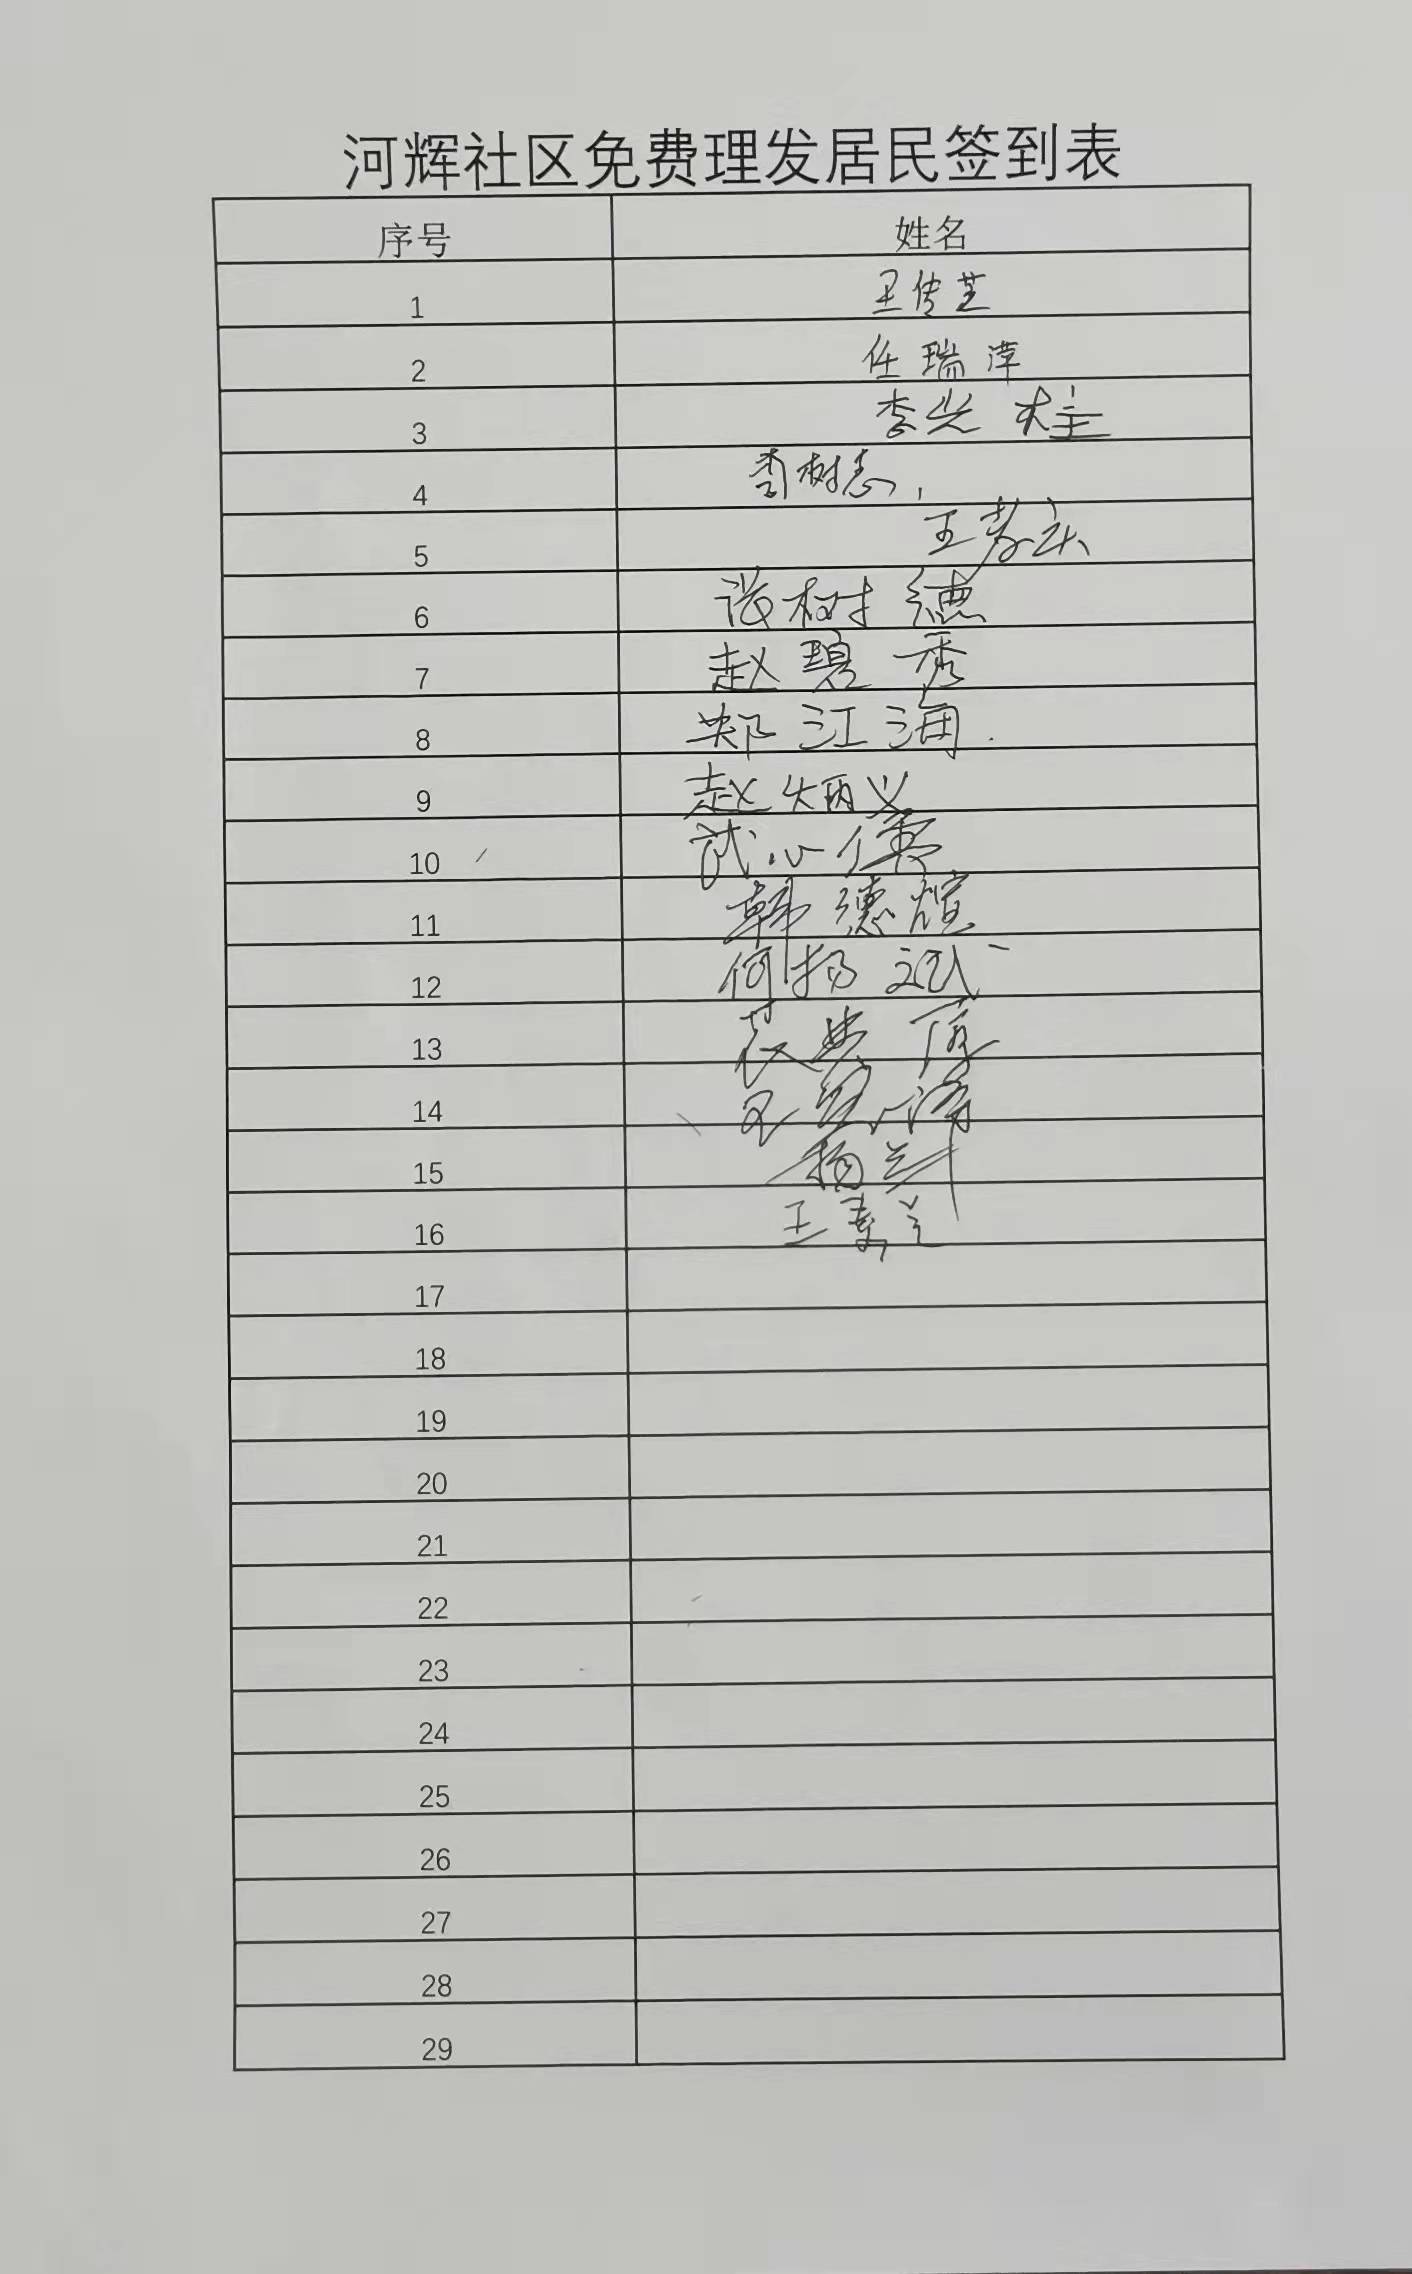 河辉社区免费理发居民签到表
序号 姓名
1 王传芝
2 任瑞萍
3 李兴柱
4 李树志
5 王
6 树德
7 赵碧秀
8 郑江海
9 赵炳义
10 武心
11 韩德煊
12 何扬
13
14
15 杨兰
16 王寿兰
17
18
19
20
21
22
23
24
25
26
27
28
29